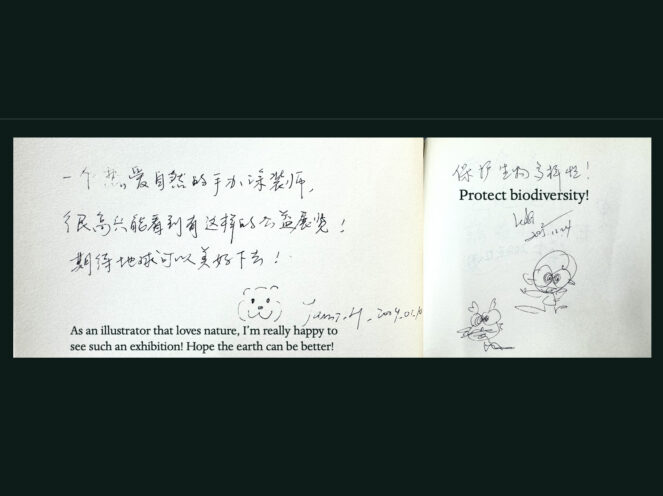 一个热爱自然的手办涂装师，
很高兴能看到有这样的公益展览！
期待地球可以美好下去！
As an illustrator that loves nature, I'm really happy to
see such an exhibition! Hope the earth can be better!
保护生物多样性！
Protect biodiversity!